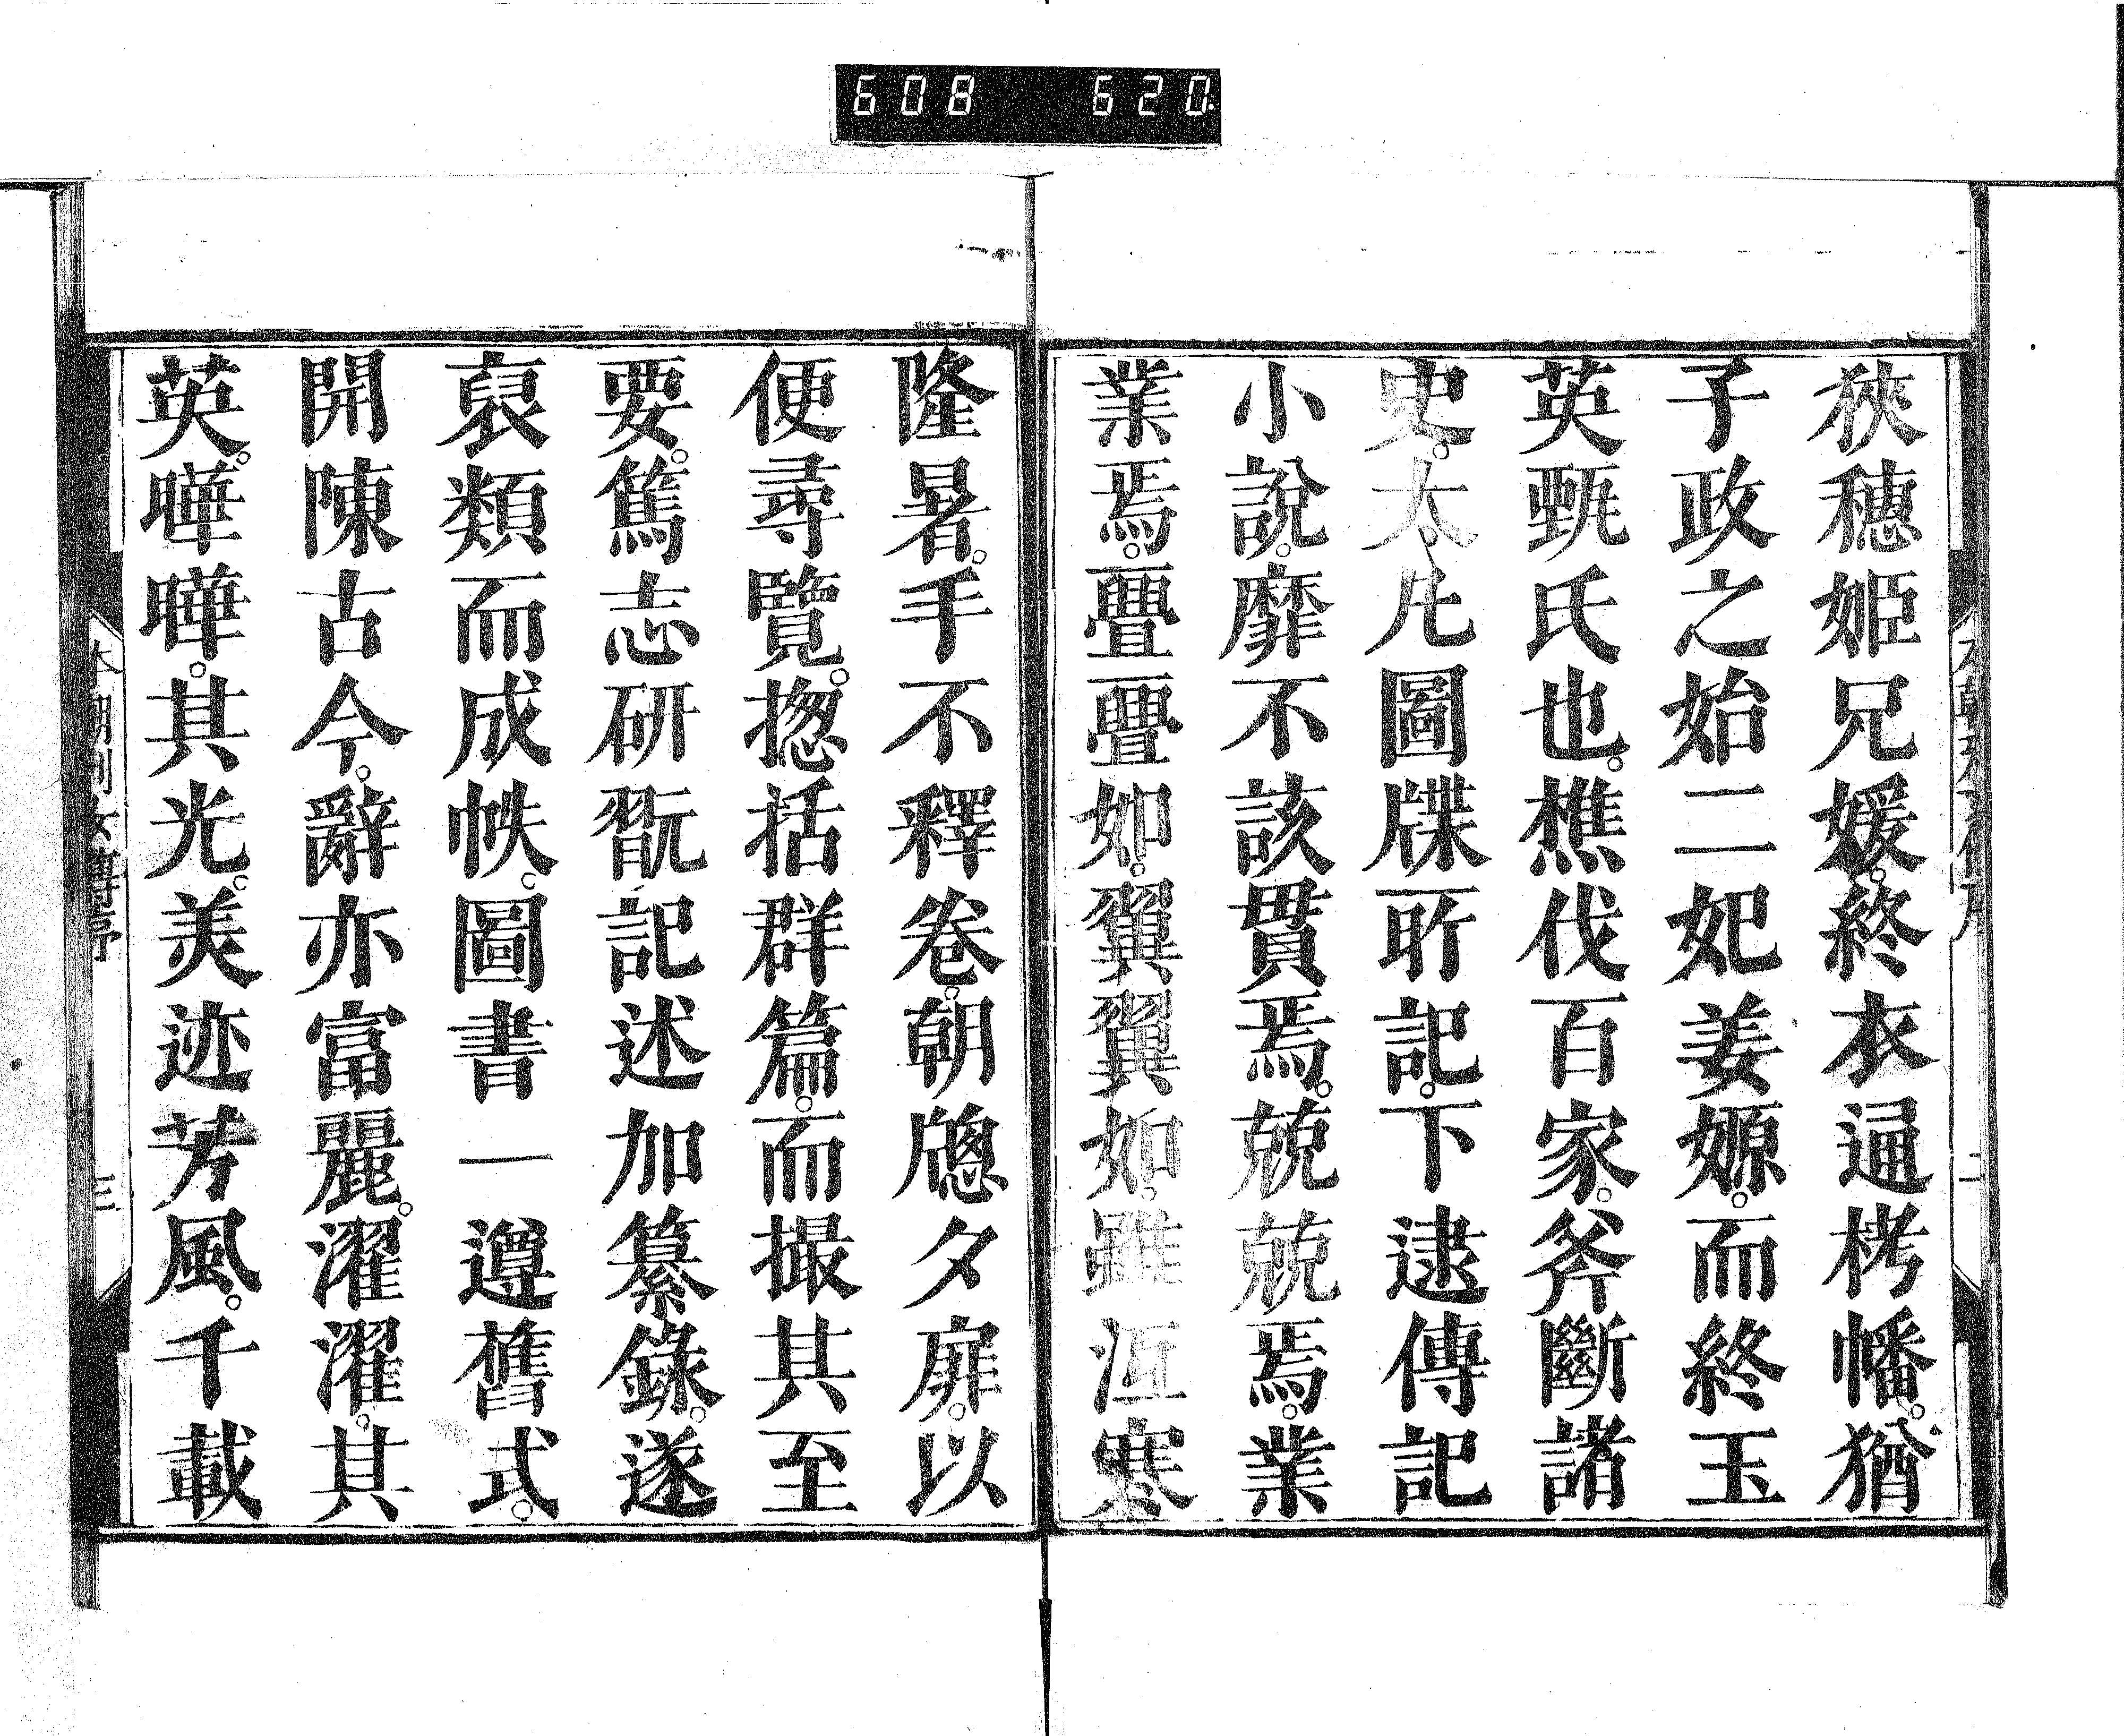 608 620
狹穗姬兄媛。終衣通栲幡。猶
子政之始二妃姜嫄。而終玉
英甄氏也。樵伐百家。斧斷諸
史。太凡圖牒所記。下逮傳記
小說。靡不該貫焉。兢兢焉。業
業焉。亹亹如。翼翼如。雖沍寒
隆暑。手不釋卷。朝牕夕扉。以
便尋覽。揔括群篇。而撮其至
要。篤志研翫記述加纂錄。遂
裒類而成帙。圖書一遵舊式。
開陳古今。辭亦富麗。濯濯。其
英。曄曄。其光。美迹芳風。千載
本朝列女傳序 三